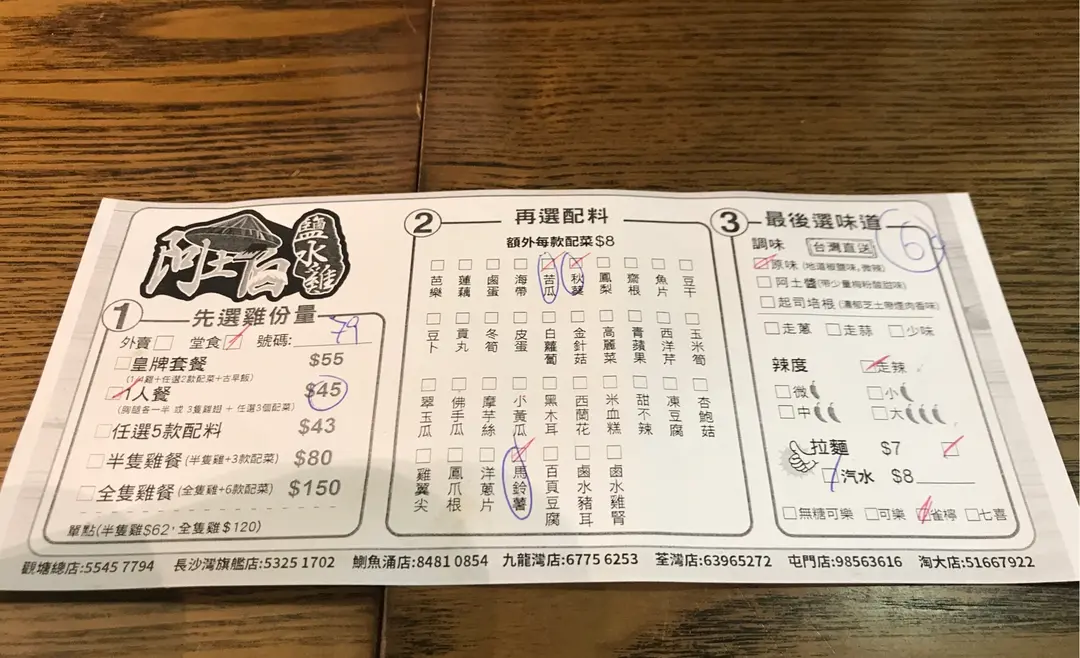 阿土伯
鹽水雞
1 先選雞份量
外賣 堂食 號碼: 79
皇牌套餐 $55
(1/4雞+任選2款配菜+古早飯)
1人餐 $45
(胸腿各一半 或 3隻雞翅 + 任選3個配菜)
任選5款配料 $43
半隻雞餐 (半隻雞+3款配菜) $80
全隻雞餐 (全隻雞+6款配菜) $150
單點(半隻雞$62﹐全隻雞$120)
2 再選配料
額外每款配菜$8
芭樂 蓮藕 鹵蛋 海帶 苦瓜 秋葵 鳳梨 齋根 魚片 豆干
豆卜 貢丸 冬筍 皮蛋 白蘿蔔 金針菇 高麗菜 青蘋果 西洋芹 玉米筍
翠玉瓜 佛手瓜 摩芋絲 小黃瓜 黑木耳 西蘭花 米血糕 甜不辣 凍豆腐 杏鮑菇
雞翼尖 鳳爪根 洋蔥片 馬鈴薯 百頁豆腐 鹵水豬耳 鹵水雞腎
3 最後選味道
6
調味 台灣直送
原味 (地道椒鹽味,微辣)
阿土醬 (帶少量梅粉酸甜味)
起司培根 (濃郁芝士帶煙肉香味)
走蔥 走蒜 少味
辣度 走辣
微 小
中 大
拉麵 $7
汽水 $8
無糖可樂 可樂 雀檸 七喜
觀塘總店:5545 7794 長沙灣旗艦店:5325 1702 鰂魚涌店:8481 0854 九龍灣店:6775 6253 荃灣店:63965272 屯門店:98563616 淘大店:51667922